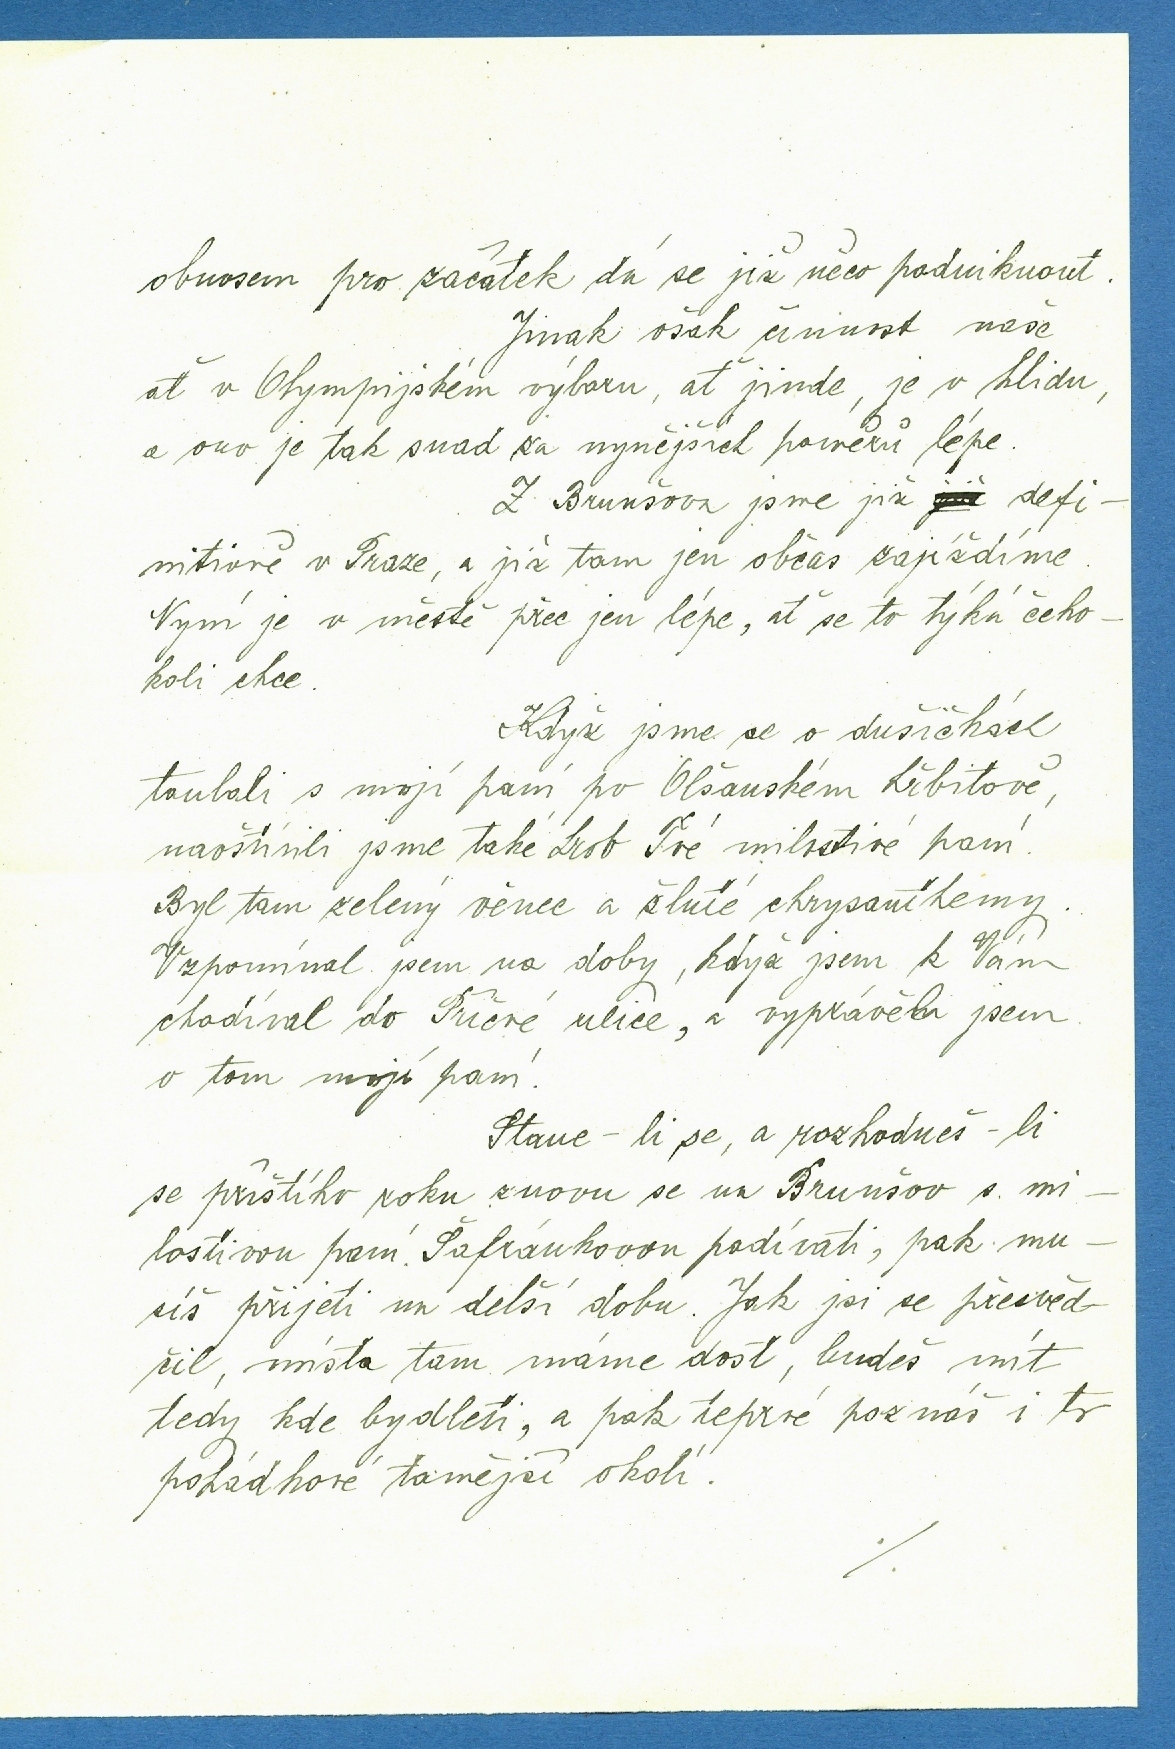 obnosem pro začátek dá se již něco podniknout.
Jinak však činnost naše
ať v Olympijském výboru, ať jinde, je v klidu,
a ono je tak snad za nynějších poměrů lépe.
Z Brunšova jsme již již defi-
nitivně v Praze, a již tam jen občas zajíždíme.
Nyní je v městě přec jen lépe, ať se to týká čeho-
koli chce.
Když jsme se o dušičkách
toulali s mojí paní po Olšanském hřbitově,
navštívili jsme také hrob Tvé milostivé paní.
Byl tam zelený věnec a žluté chrysanthemy.
Vzpomínal jsem na doby, když jsem k Vám
chodíval do Příčné ulice, a vyprávěl jsem
o tom mojí paní.
Stane-li se, a rozhodneš-li
se příštího roku znovu se na Brunšov s mi-
lostivou paní Šafránkovou podívati, pak mu-
síš přijeti na delší dobu. Jak jsi se přesvěd-
čil, místa tam máme dost, budeš mít
tedy kde bydleti, a pak teprvé poznáš i to
pohádkové tamější okolí.
./.